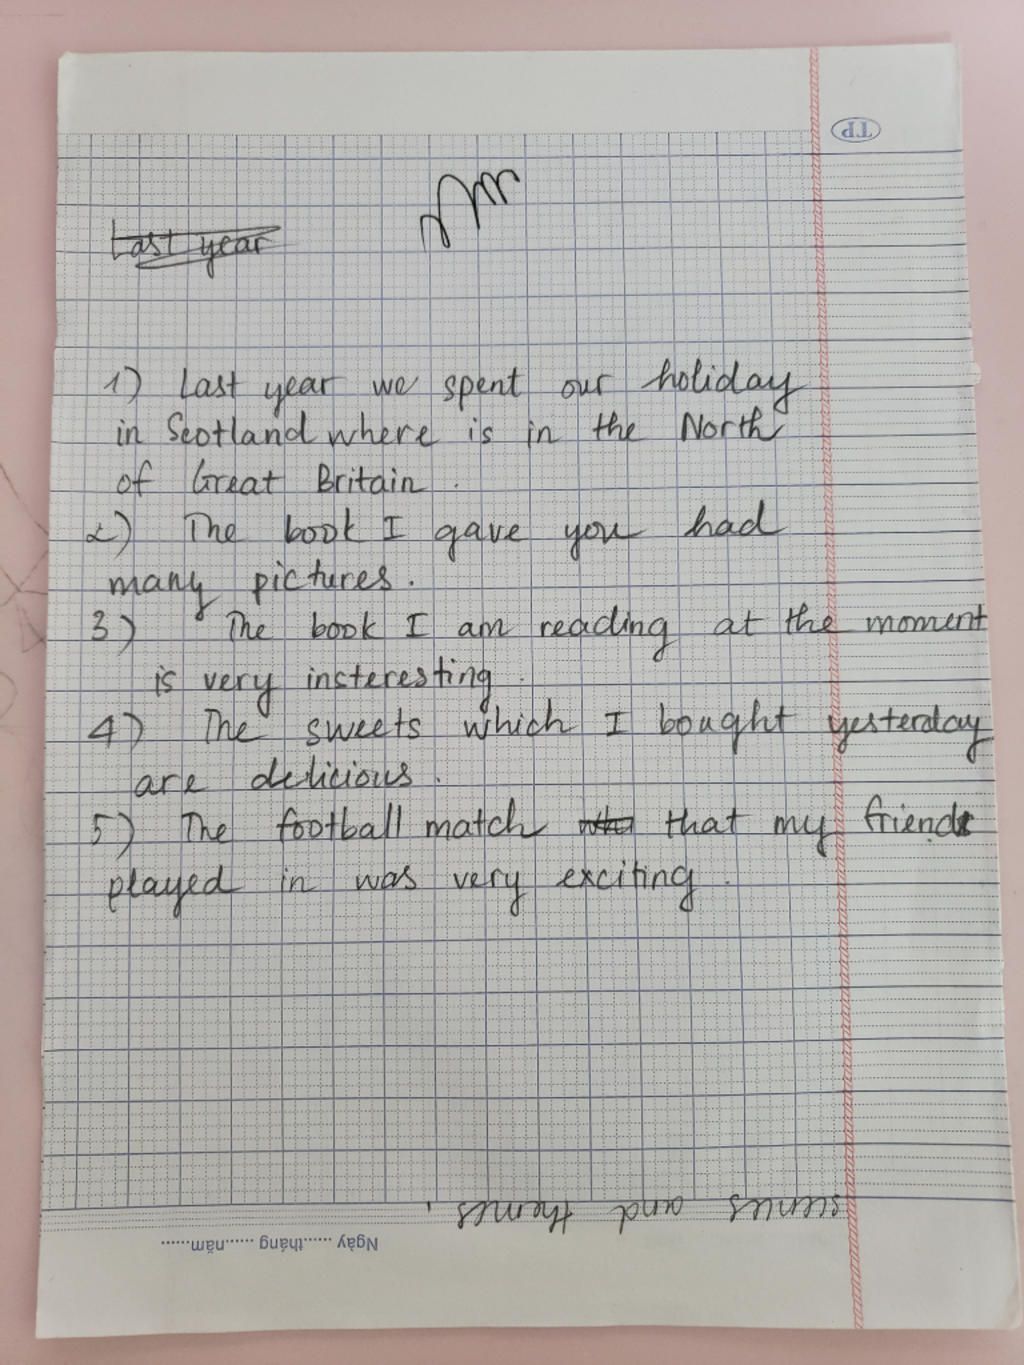 TP
Last year
1) Last year we spent our holiday
in Scotland where is in the North
of Great Britain.
2) The book I gave you had
many pictures.
3) The book I am reading at the moment
is very insteresting.
4) The sweets which I bought yesterday
are delicious.
5) The football match that my friend
played in was very exciting.
and themes.
Ngày ......tháng ......năm......